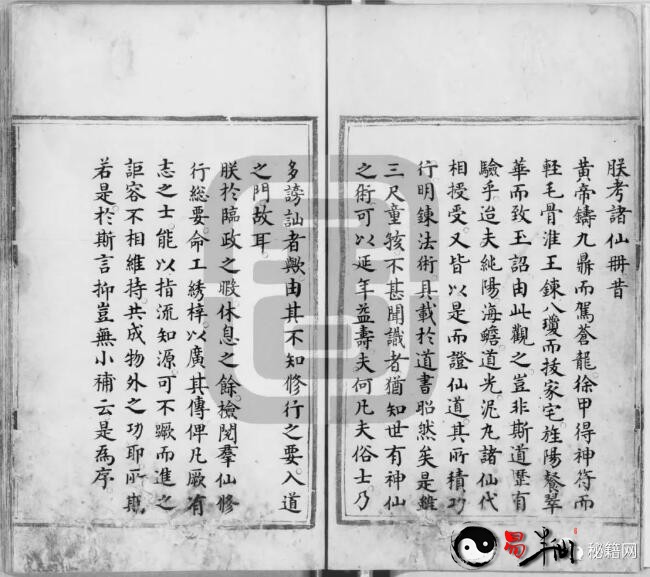 朕考諸仙冊昔
黃帝鑄九鼎而駕蒼龍徐甲得神符而
軽毛骨淮王鍊八瓊而技家宅旌陽餐翠
華而致玉詔由此觀之豈非斯道歷有
驗乎迨夫純陽海蟾道光泥丸諸仙代
相授受又皆以是而證仙道其所積功
行明鍊法術具載於道書昭然矣是雖
三尺童孩不甚聞識者猶知世有神仙
之術可以延年益壽夫何凡夫俗士乃
多謗訕者歟由其不知修行之要入道
之門故耳
朕於臨政之暇休息之餘檢閱羣仙修
行總要命工綉梓以廣其傳俾凡厥有
志之士能以指流知源可不蹶而進之
詎容不相維持共成物外之功耶所期
若是於斯言抑豈無小補云是為序
易半仙
秘籍网